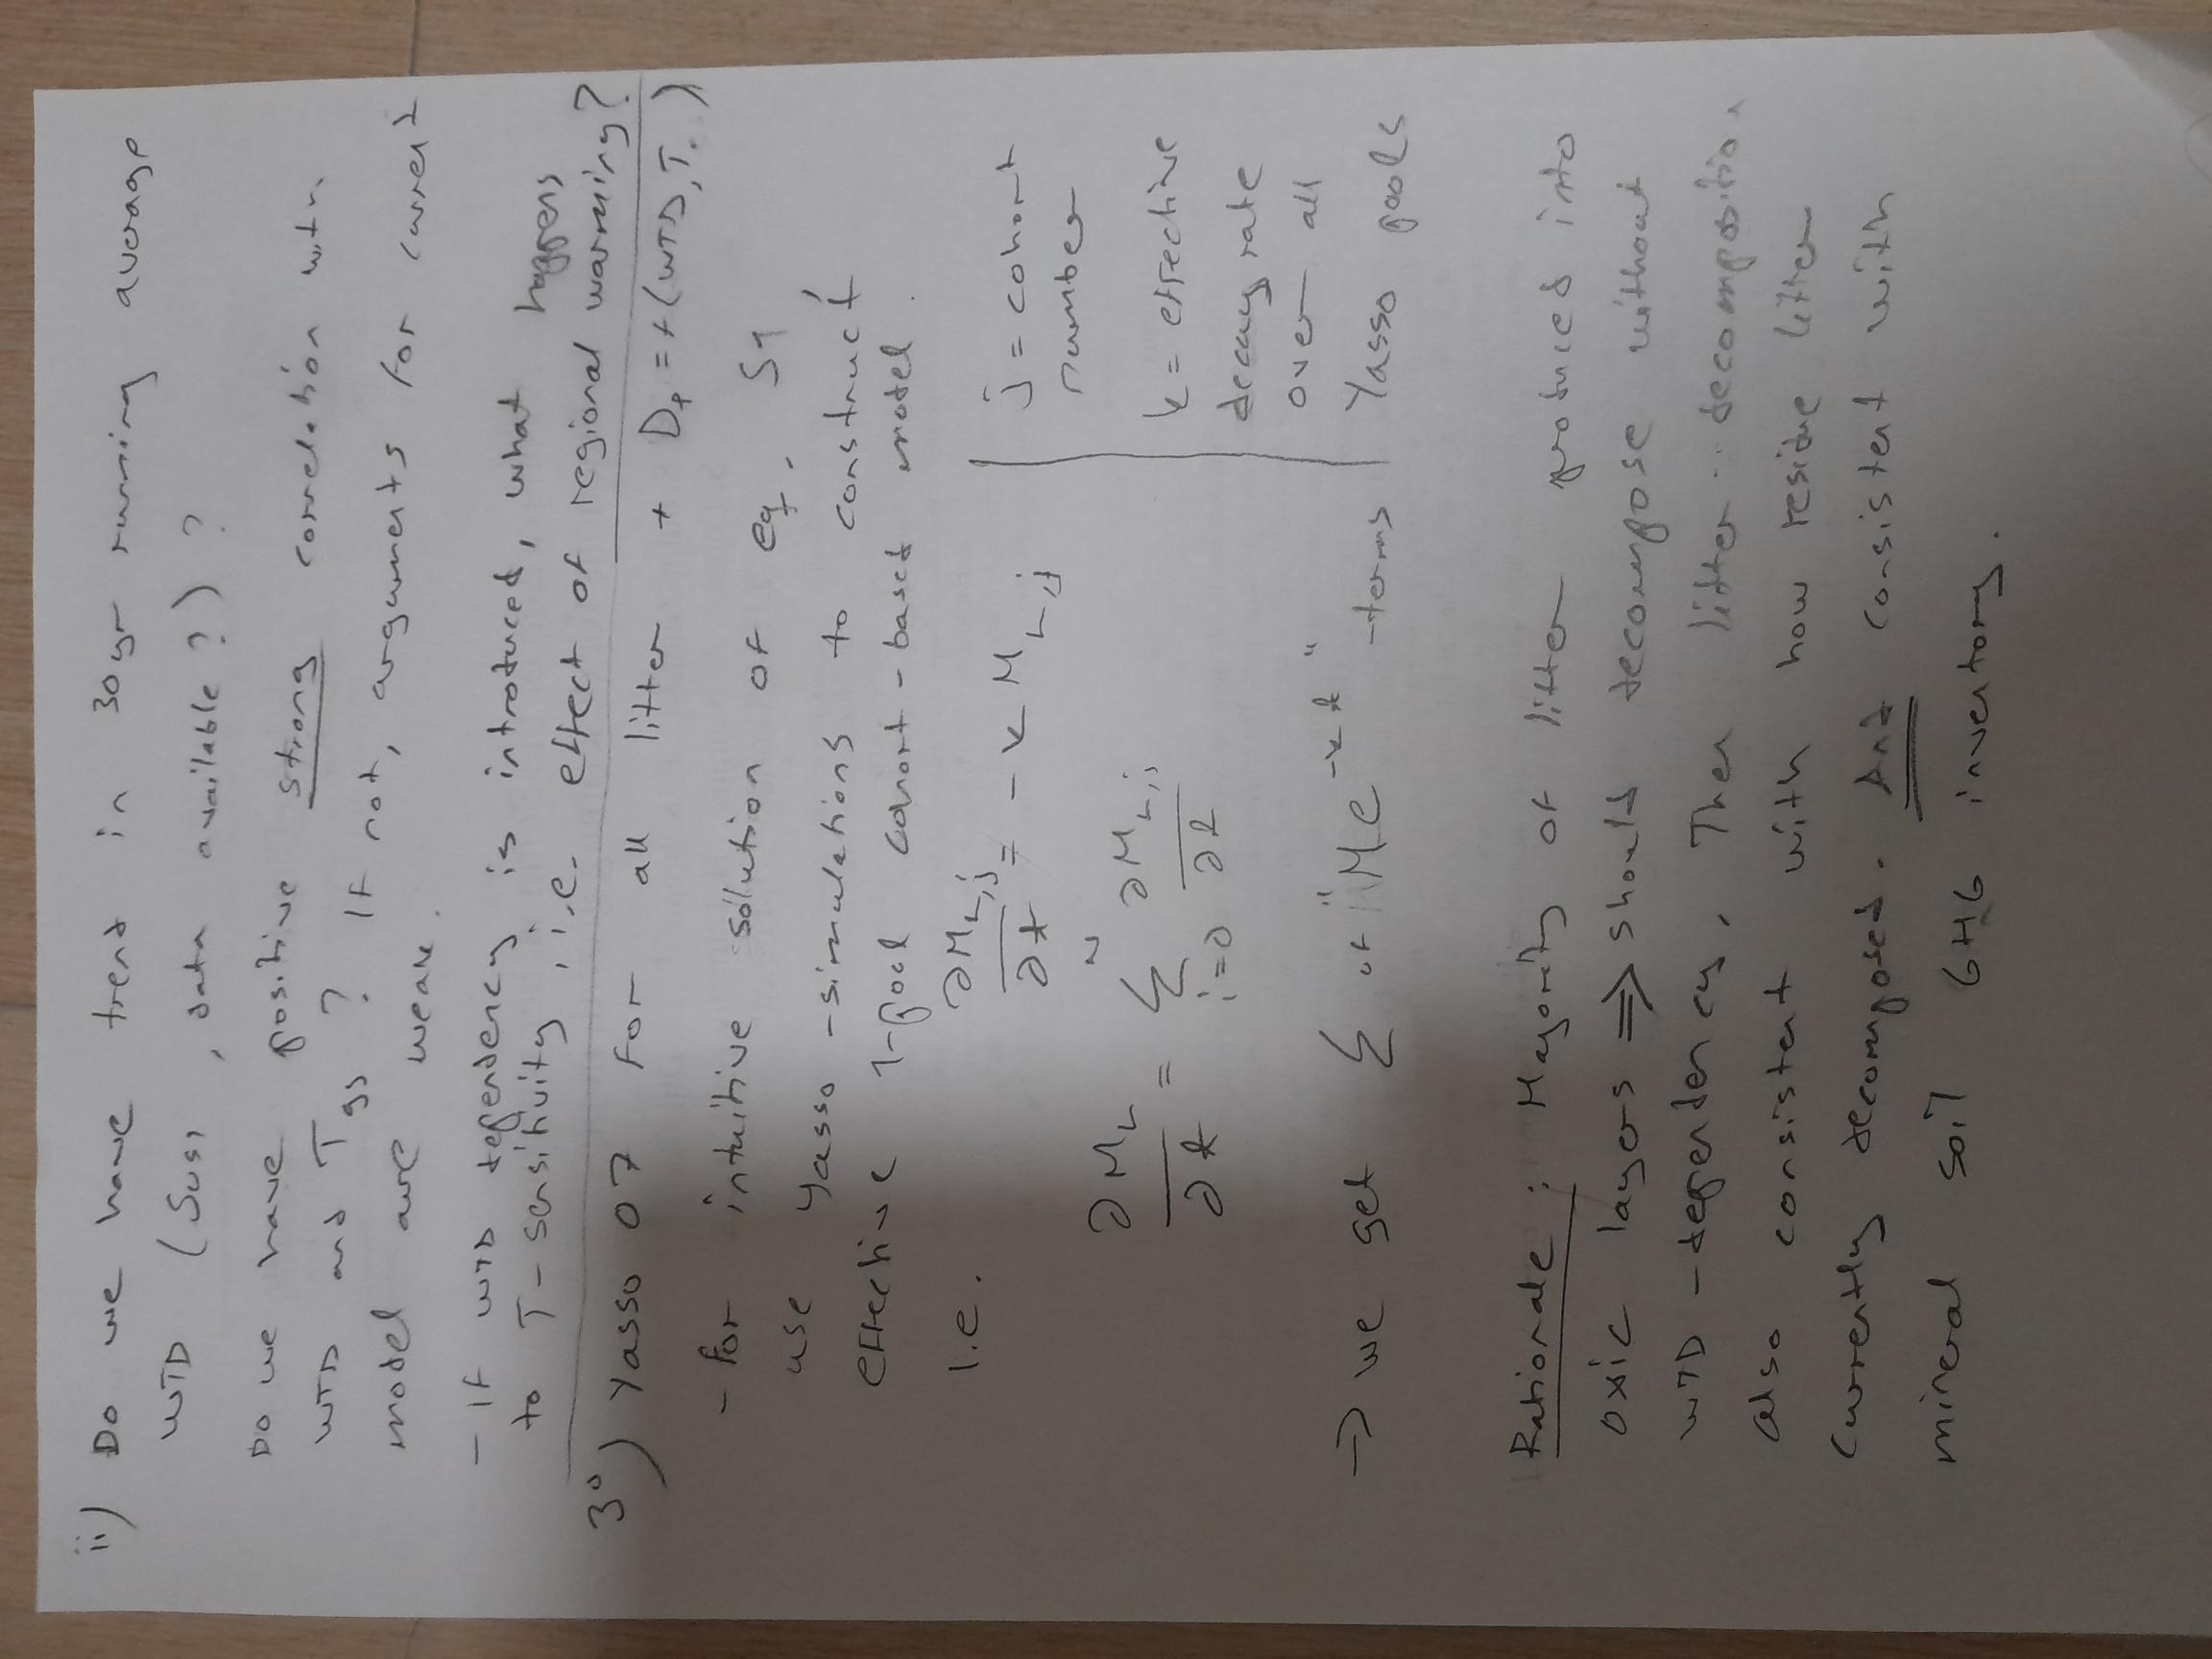 ii) Do we have trend in 30yr running average
WTD (Susi, data available?) ?
Do we have positive strong correlation with
WTD and Tgs ? If not, arguments for current
model are weak.
- If WTD dependency is introduced, what happens
to T-sensitivity, i.e. effect of regional warming?
3°) Yasso 07 for all litter + Dp = f(WTD, T. )
- For intuitive solution of eq. S1,
use Yasso-simulations to construct
effective 1-pool cohort-based model.
I.e. ∂M_L,j / ∂t = -k M_L,j
j = cohort
number
∂M_L / ∂t = Σ_{i=0}^{N} ∂M_L,i / ∂t
k = effective
decay rate
over all
Yasso pools
→ we get Σ of "Me^{-kt}" -terms
Rationale : Majority of litter produced into
oxic layers ⇒ should decompose without
WTD-dependency. Then litter decomposition
also consistent with how residue litter
currently decomposed. And consistent with
mineral soil GHG inventory.